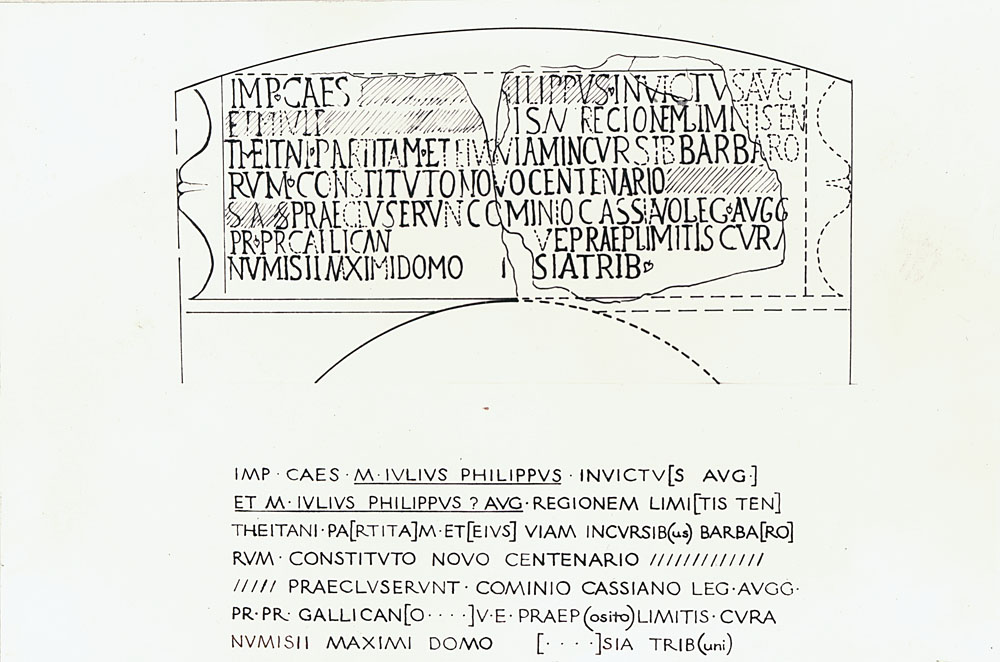 IMP·CAES ILIPPVS·INVICTVSAVG
ETMIVLI ISN REGIONEMLIMITISTEN
THEITNI·PARTITAM·ET EIVSVIAMINCVRSIBBARBARO
RVM·CONSTITVTONOVOCENTENARIO
S A PRAECLVSERVNCOMINIOCASSIAVOLEG·AVGG
PR·PRCAILICAN VEPRAEPLIMITIS CVRA
NVMISIIMXIMIDOMO SIATRIB
IMP · CAES · M·IVLIVS PHILIPPVS · INVICTV[S AVG·]
ET M·IVLIVS PHILIPPVS ? AVG·REGIONEM LIMI[TIS TEN]
THEITANI·PA[RTITA]M·ET[EIVS] VIAM INCVRSIB(us) BARBA[RO]
RVM· CONSTITVTO NOVO CENTENARIO /////////////
///// PRAECLVSERVNT· COMINIO CASSIANO LEG·AVGG·
PR·PR· GALLICAN[O ····]V·E·PRAEP(osito)LIMITIS·CVRA
NVMISII MAXIMI DOMO [····]SIA TRIB(uni)